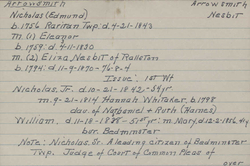 Arrowsmith Arrowsmith
Nicholas (Edmund) Nesbit
b. 1756 Raritan Twp. d. 4-21-1843
m. (1) Eleanor
b. 1759. d. 4-11-1820
m. (2) Eliza Nesbit of Ralston
b. 1794. d. 11-9-1870-76-8-4
Issue: 1st Wf
Nicholas, Jr. d. 10-21-1842, -54yr
m. 9-21-1814 Hannah Whitaker b. 1798
dau. of Nathaniel + Ruth (Hames)
William, d. 11-18-1828-55 yr: m. Mary, d. 12-8-1816, 41y
bor. Bedminster
Note: Nicholas, Sr. A leading citizen of Bedminster
Twp. Judge of Court of Common Pleas of
over